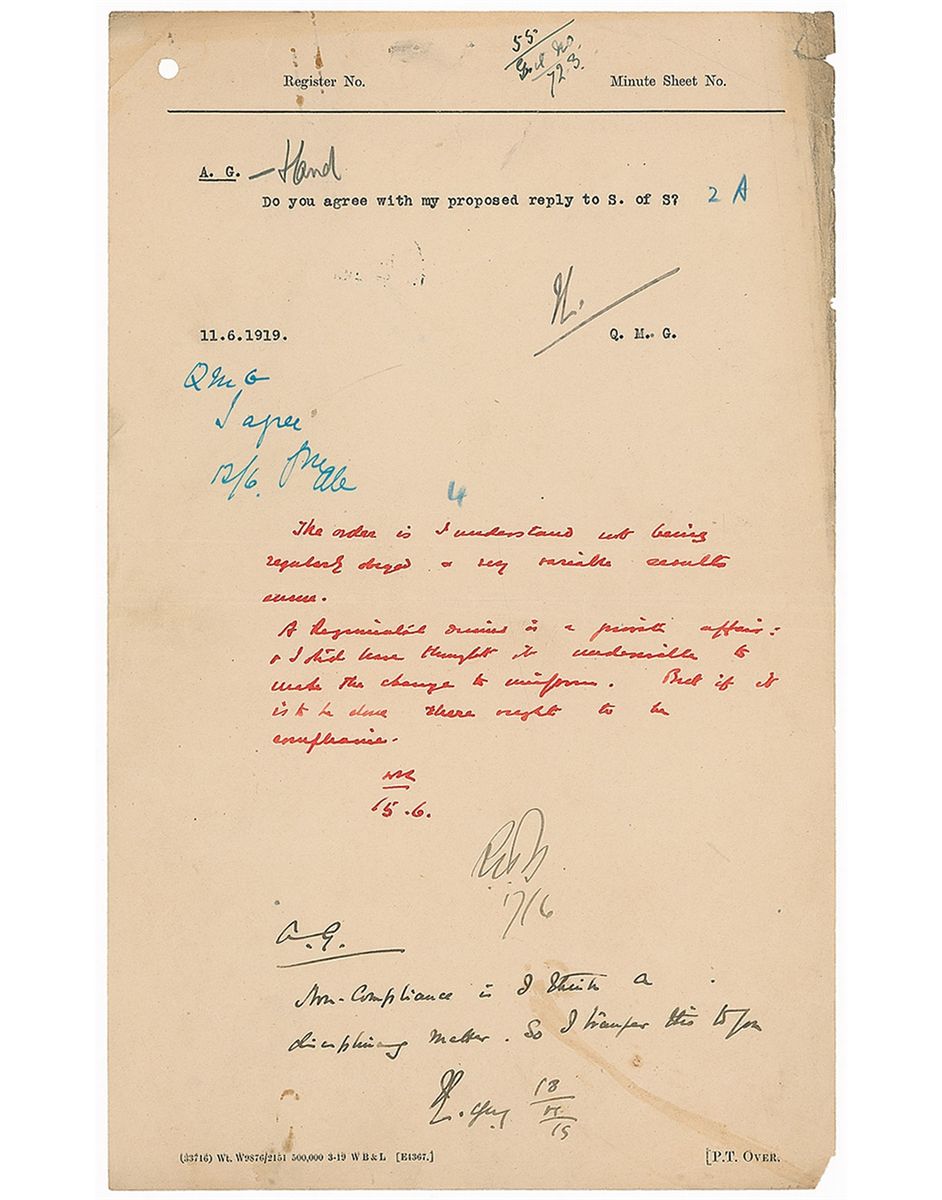 55
Gnl No.
723.
Register No. Minute Sheet No.
A. G. — Hand
Do you agree with my proposed reply to S. of S? 2 A
11.6.1919. Q. M. G.
QMG
I agree
12/6.
4
The order is I understand not being
regularly obeyed & very variable results
ensue.
A Regimental dinner is a private affair:
& I shd have thought it undesirable to
make the change to uniform. But if it
is to be done there ought to be
compliance.
WSC
15.6.
17/6
A.G.
Non-Compliance is I think a
disciplinary matter. So I transfer this to you
18
VI
19
(33716) Wt. W9876/2151 500,000 3-19 W B & L [E1367.] [P.T. OVER.